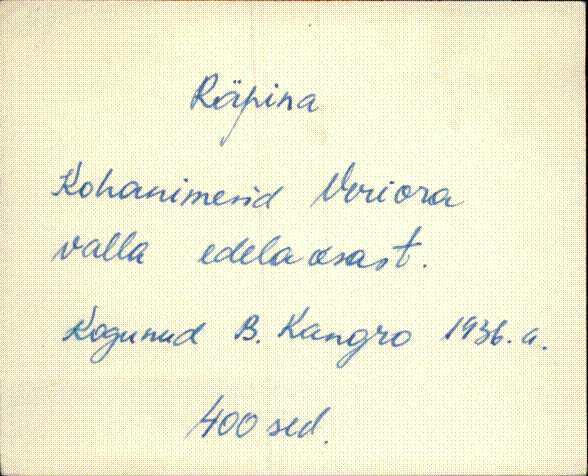 Räpina
Kohanimesid Veriora
valla edelaosast.
Kogunud B. Kangro 1936. a.
400 sed.